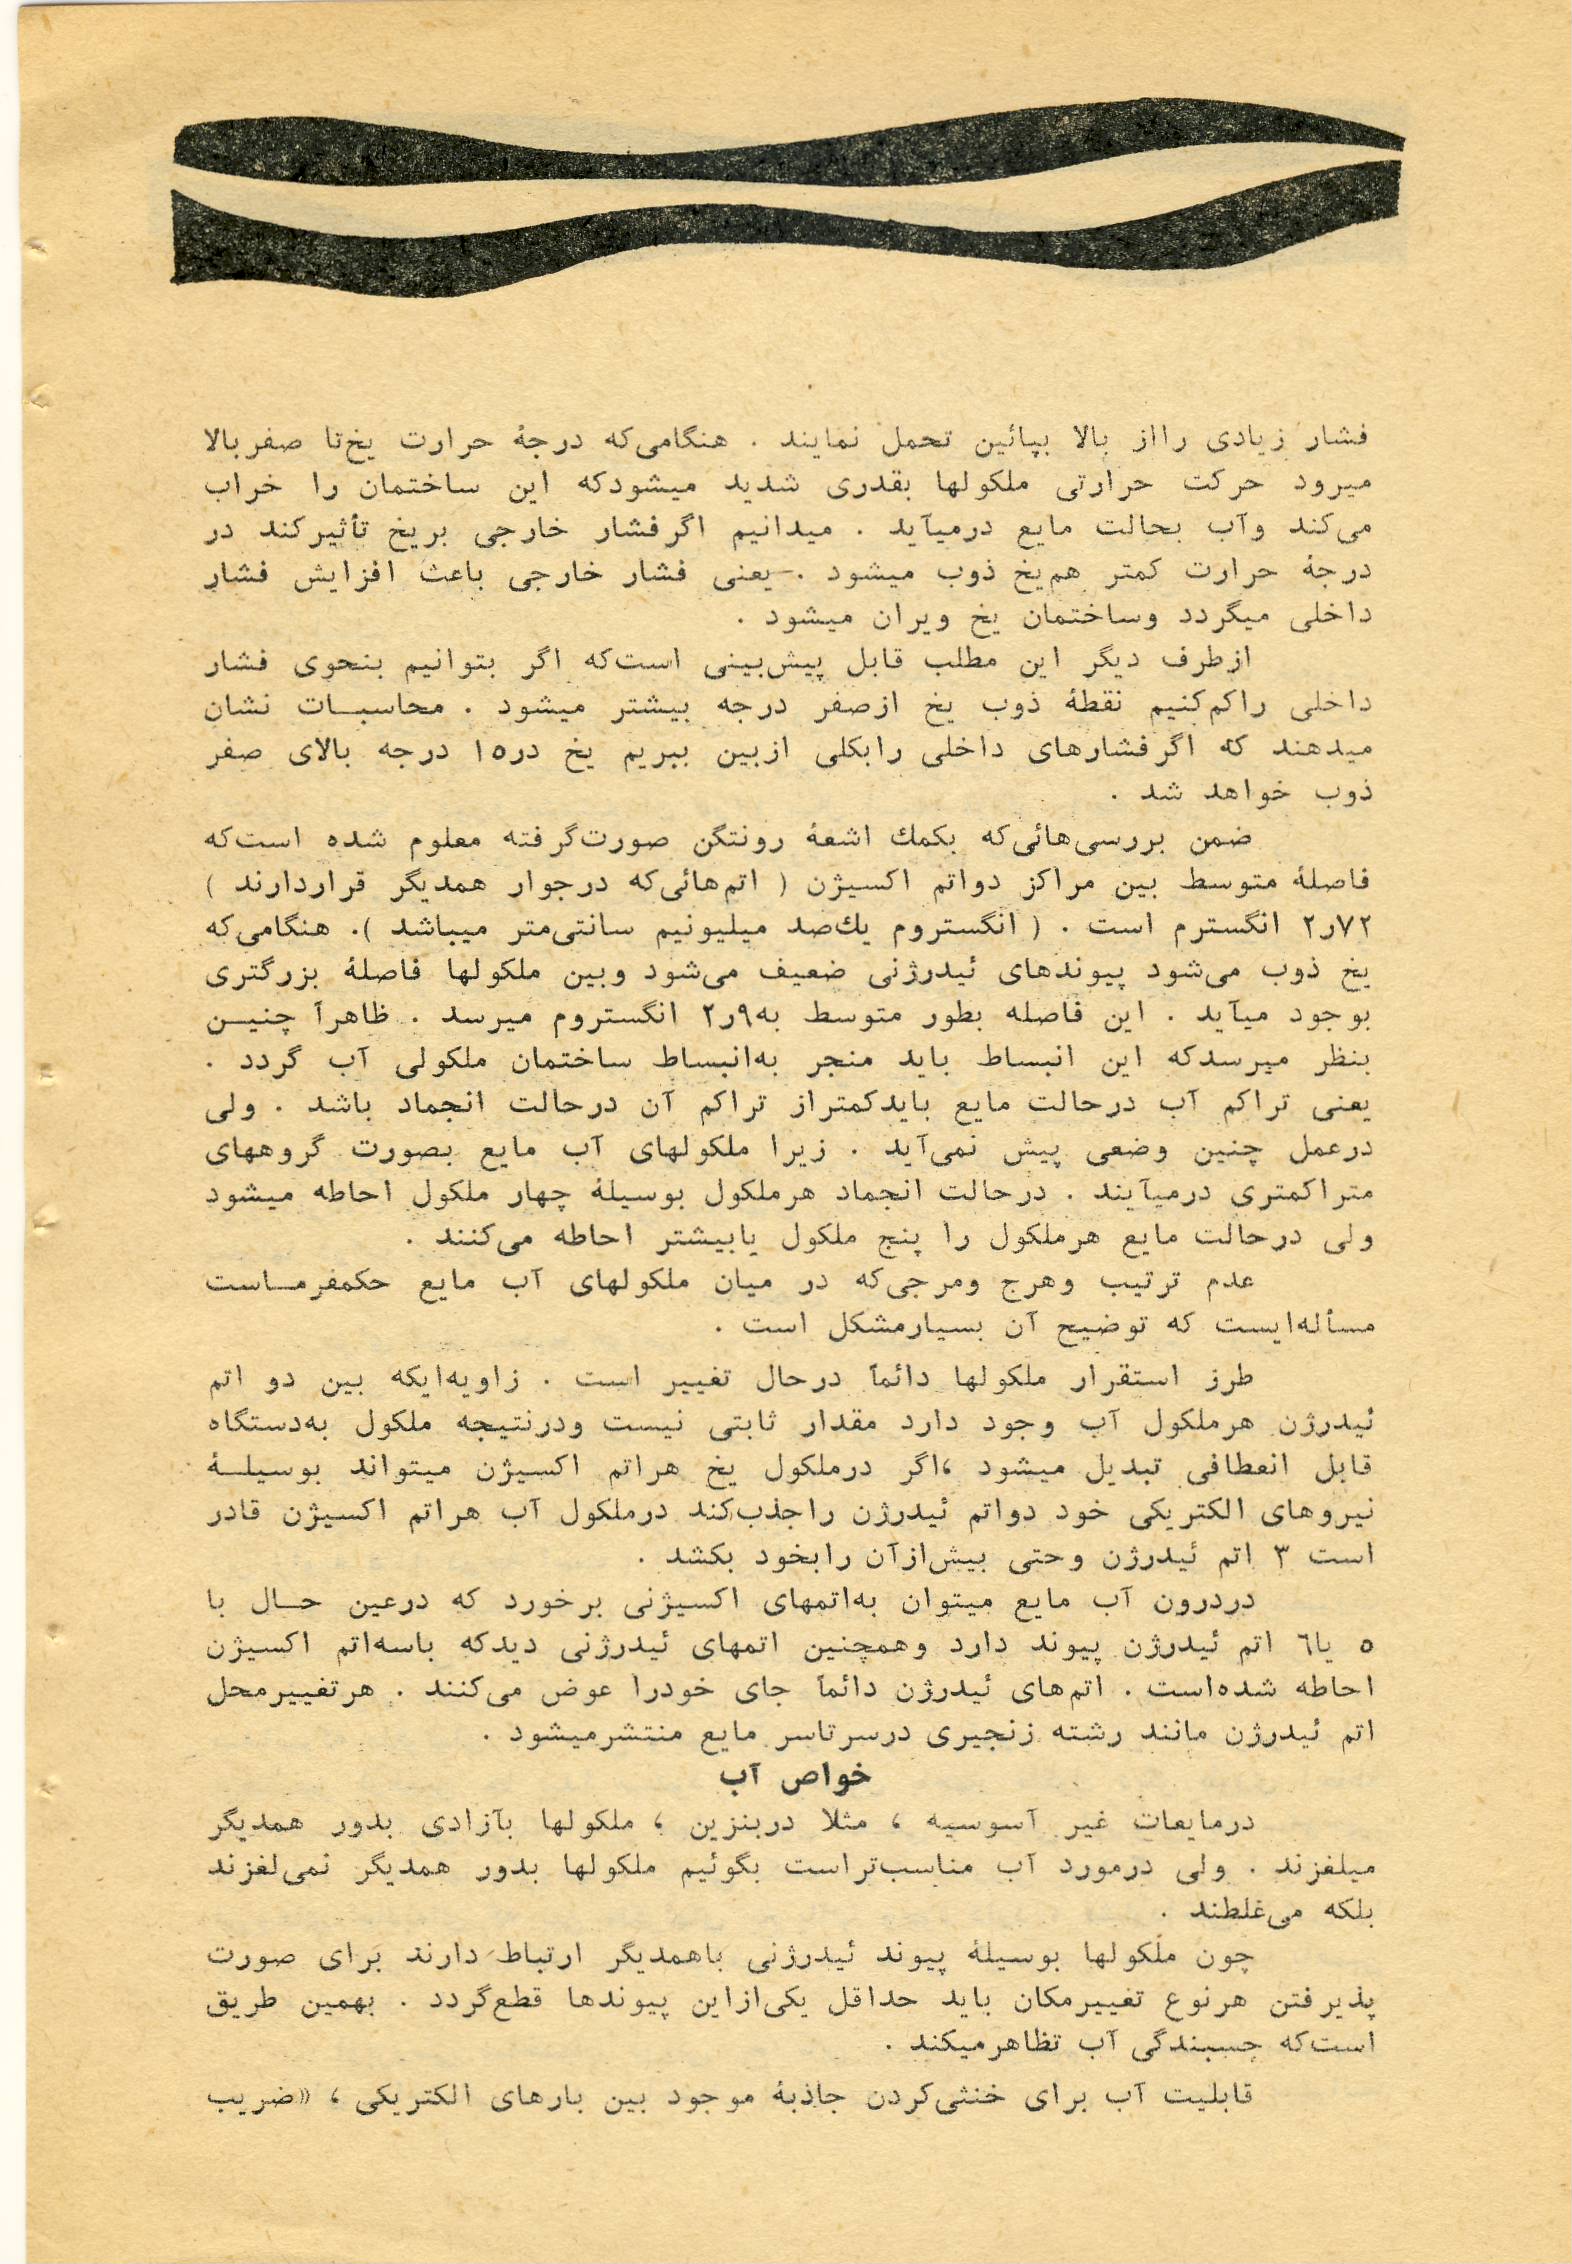 فشار زیادی رااز بالا بپائین تحمل نمایند . هنگامی‌که درجهٔ حرارت یخ‌تا صفربالا
میرود حرکت حرارتی ملکولها بقدری شدید میشودکه این ساختمان را خراب
می‌کند وآب بحالت مایع درمیآید . میدانیم اگرفشار خارجی بریخ تأثیرکند در
درجهٔ حرارت کمتر هم‌یخ ذوب میشود . یعنی فشار خارجی باعث افزایش فشار
داخلی میگردد وساختمان یخ ویران میشود .
ازطرف دیگر این مطلب قابل پیش‌بینی است‌که اگر بتوانیم بنحوی فشار
داخلی راکم‌کنیم نقطهٔ ذوب یخ ازصفر درجه بیشتر میشود . محاسبـات نشان
میدهند که اگرفشارهای داخلی رابکلی ازبین ببریم یخ در۱۵ درجه بالای صفر
ذوب خواهد شد .
ضمن بررسی‌هائی‌که بکمك اشعهٔ رونتگن صورت‌گرفته معلوم شده است‌که
فاصلهٔ متوسط بین مراکز دواتم اکسیژن ( اتم‌هائی‌که درجوار همدیگر قراردارند )
۲٫۷۲ انگسترم است . ( انگستروم یك‌صد میلیونیم سانتی‌متر میباشد ). هنگامی‌که
یخ ذوب می‌شود پیوندهای ئیدرژنی ضعیف می‌شود وبین ملکولها فاصلهٔ بزرگتری
بوجود میآید . این فاصله بطور متوسط به۲٫۹ انگستروم میرسد . ظاهراً چنیـن
بنظر میرسدکه این انبساط باید منجر به‌انبساط ساختمان ملکولی آب گردد .
یعنی تراکم آب درحالت مایع بایدکمتراز تراکم آن درحالت انجماد باشد . ولی
درعمل چنین وضعی پیش نمی‌آید . زیرا ملکولهای آب مایع بصورت گروههای
متراکمتری درمیآیند . درحالت انجماد هرملکول بوسیلهٔ چهار ملکول احاطه میشود
ولی درحالت مایع هرملکول را پنج ملکول یابیشتر احاطه می‌کنند .
عدم ترتیب وهرج ومرجی‌که در میان ملکولهای آب مایع حکمفرمـاست
مسأله‌ایست که توضیح آن بسیارمشکل است .
طرز استقرار ملکولها دائماً درحال تغییر است . زاویه‌ایکه بین دو اتم
ئیدرژن هرملکول آب وجود دارد مقدار ثابتی نیست ودرنتیجه ملکول به‌دستگاه
قابل انعطافی تبدیل میشود ،اگر درملکول یخ هراتم اکسیژن میتواند بوسیلـهٔ
نیروهای الکتریکی خود دواتم ئیدرژن راجذب‌کند درملکول آب هراتم اکسیژن قادر
است ۳ اتم ئیدرژن وحتی بیش‌ازآن رابخود بکشد .
دردرون آب مایع میتوان به‌اتمهای اکسیژنی برخورد که درعین حـال با
۵ یا۶ اتم ئیدرژن پیوند دارد وهمچنین اتمهای ئیدرژنی دیدکه باسه‌اتم اکسیژن
احاطه شده‌است . اتم‌های ئیدرژن دائماً جای خودرا عوض می‌کنند . هرتغییرمحل
اتم ئیدرژن مانند رشته زنجیری درسرتاسر مایع منتشرمیشود .
خواص آب
درمایعات غیر آسوسیه ، مثلا دربنزین ، ملکولها بآزادی بدور همدیگر
میلغزند . ولی درمورد آب مناسب‌تراست بگوئیم ملکولها بدور همدیگر نمی‌لغزند
بلکه می‌غلطند .
چون ملکولها بوسیلهٔ پیوند ئیدرژنی باهمدیگر ارتباط دارند برای صورت
پذیرفتن هرنوع تغییرمکان باید حداقل یکی‌ازاین پیوندها قطع‌گردد . بهمین طریق
است‌که چسبندگی آب تظاهرمیکند .
قابلیت آب برای خنثی‌کردن جاذبهٔ موجود بین بارهای الکتریکی ، «ضریب